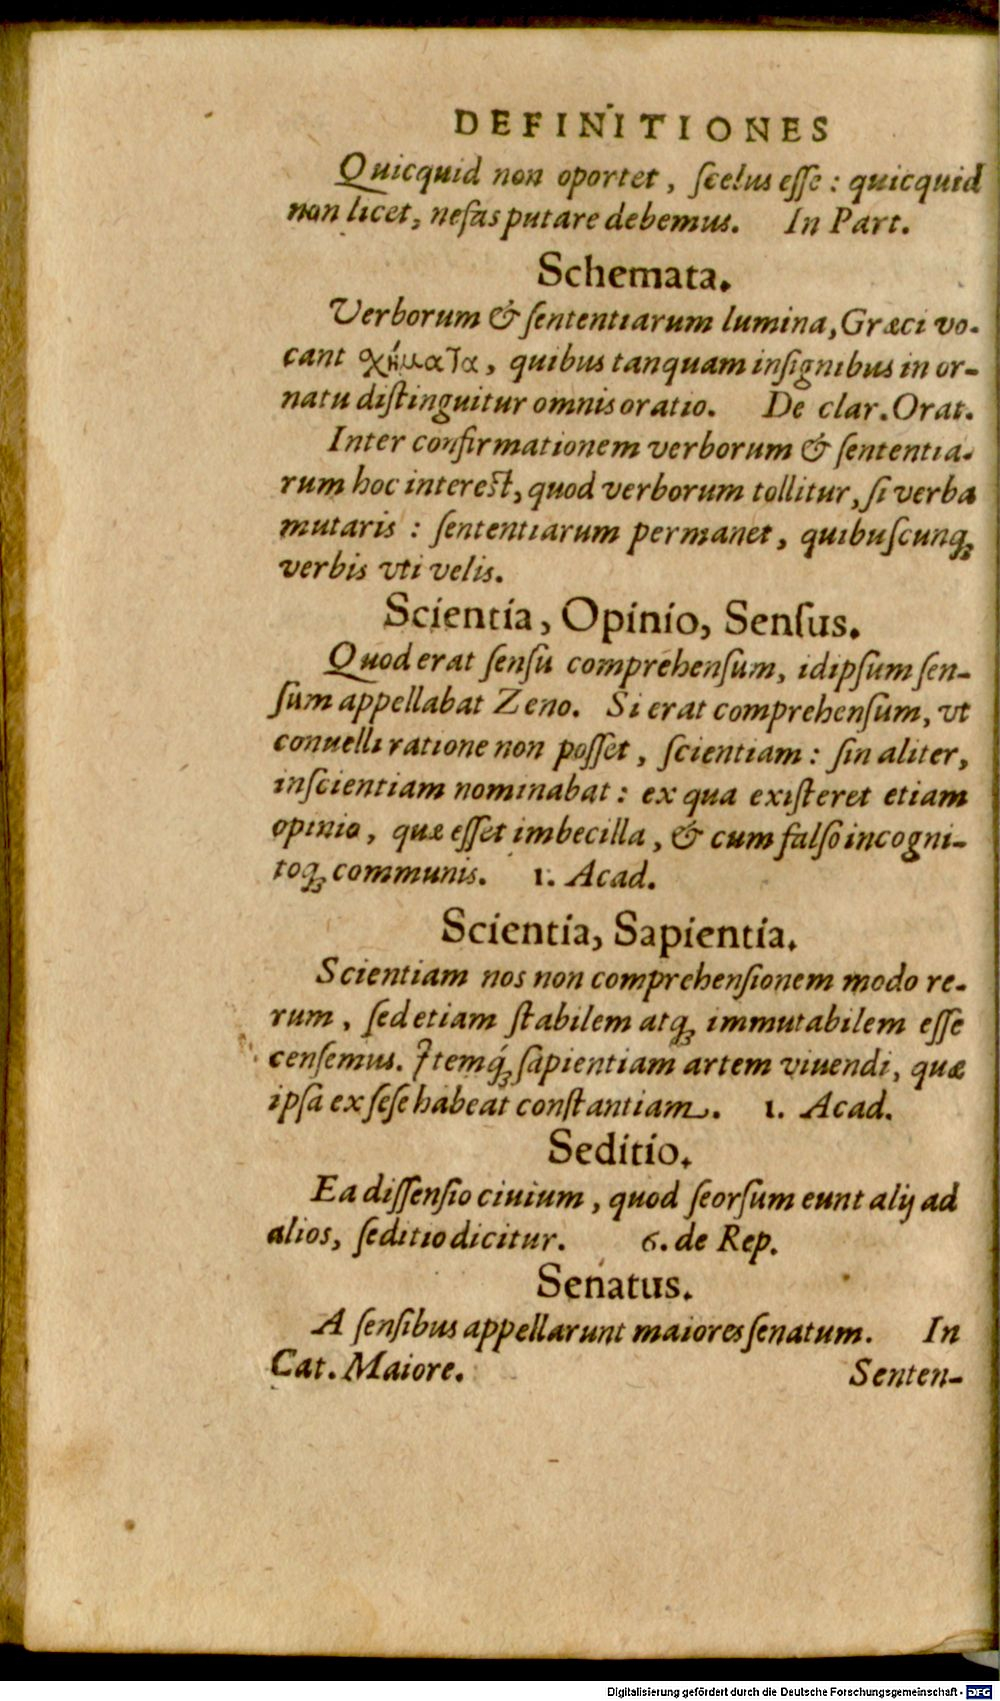 DEFINITIONES
Quicquid non oportet, ſcelus eſſe : quicquid
non licet, nefas putare debemus. In Part.
Schemata.
Verborum & ſententiarum lumina, Græci vo-
cant χήματα, quibus tanquam inſignibus in or-
natu diſtinguitur omnis oratio. De clar. Orat.
Inter confirmationem verborum & ſententia-
rum hoc intereſt, quod verborum tollitur, ſi verba
mutaris : ſententiarum permanet, quibuſcunq;
verbis vti velis.
Scientia, Opinio, Senſus.
Quod erat ſenſu comprehenſum, idipſum ſen-
ſum appellabat Zeno. Si erat comprehenſum, vt
conuelli ratione non poſſet, ſcientiam : ſin aliter,
inſcientiam nominabat : ex qua exiſteret etiam
opinio, quæ eſſet imbecilla, & cum falſo incogni-
toq; communis. 1. Acad.
Scientia, Sapientia.
Scientiam nos non comprehenſionem modo re-
rum, ſed etiam ſtabilem atq; immutabilem eſſe
cenſemus. Itemq́; ſapientiam artem viuendi, quæ
ipſa ex ſeſe habeat conſtantiam. 1. Acad.
Seditio.
Ea diſſenſio ciuium, quod ſeorſum eunt alij ad
alios, ſeditio dicitur. 6. de Rep.
Senatus.
A ſenſibus appellarunt maiores ſenatum. In
Cat. Maiore.
Senten-
Digitalisierung gefördert durch die Deutsche Forschungsgemeinschaft - DFG